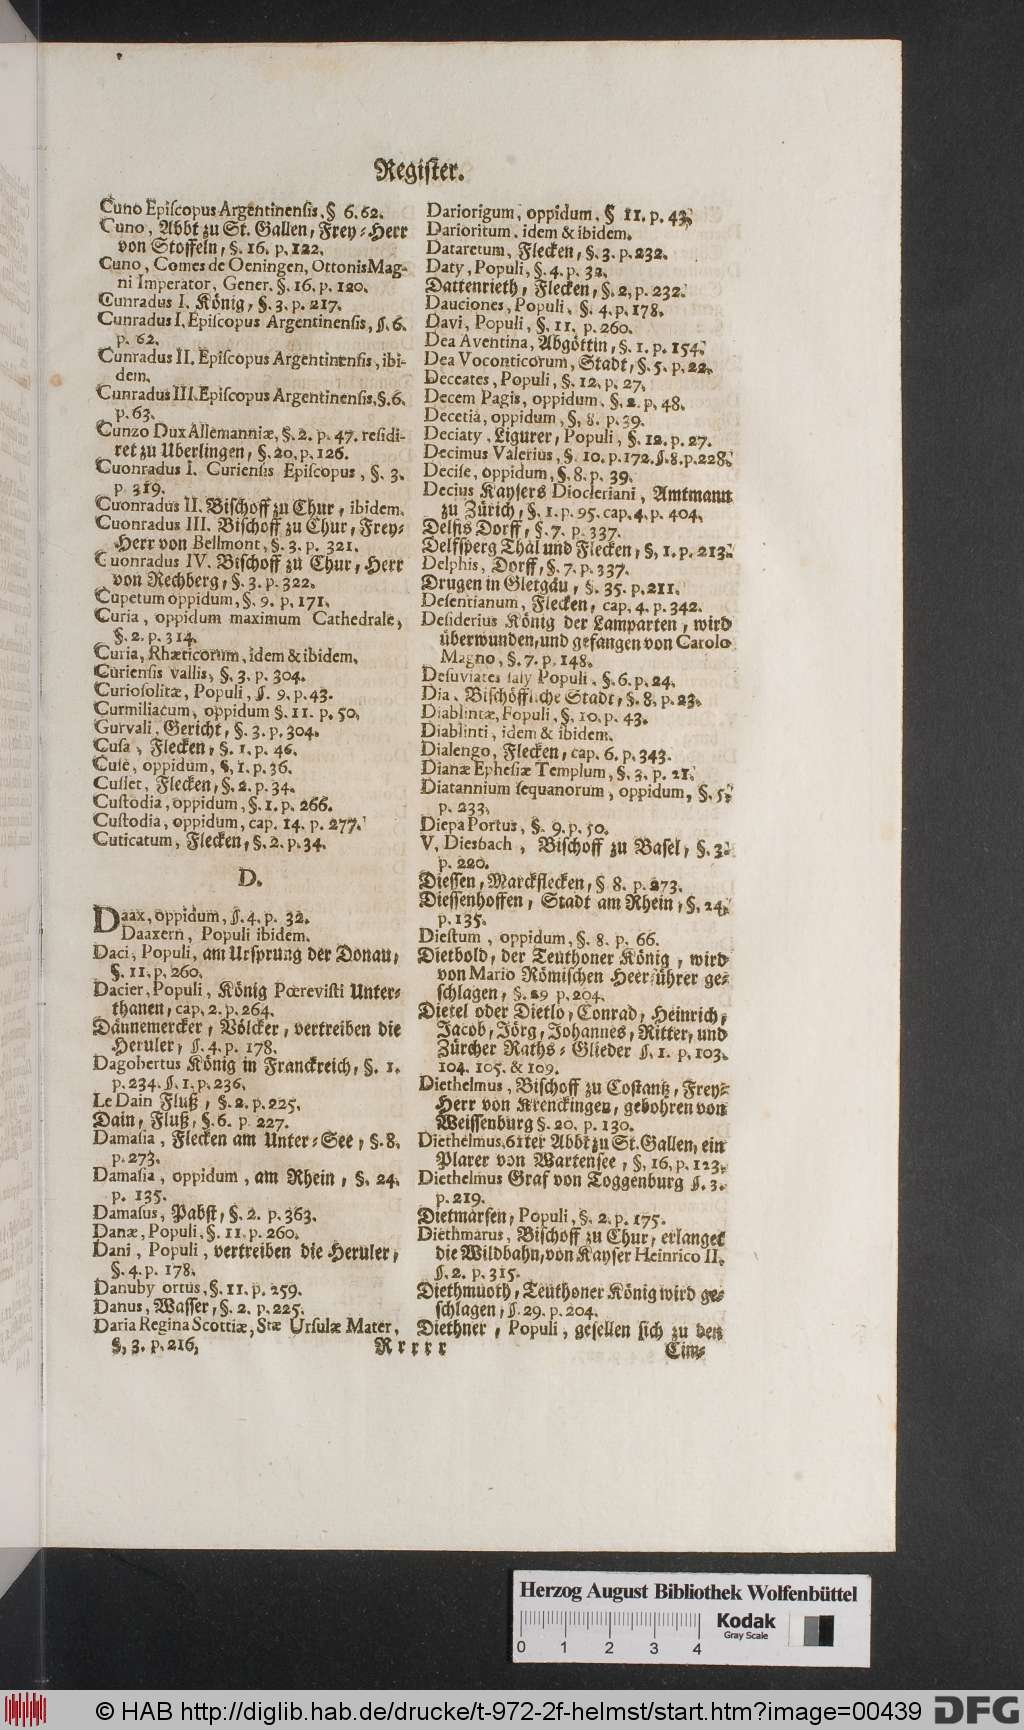 Register.
Cuno Epiſcopus Argentinenſis, § 6. 62.
Cuno, Abbt zu St. Gallen, Frey-Herr
von Stoffeln, §. 16. p. 122.
Cuno, Comes de Oeningen, Ottonis Mag-
ni Imperator, Gener. §. 16. p. 120.
Cunradus I. König, §. 3. p. 217.
Cunradus I. Epiſcopus Argentinenſis, ſ. 6.
p. 62.
Cunradus II. Epiſcopus Argentinenſis, ibi-
dem.
Cunradus III. Epiſcopus Argentinenſis, §. 6.
p. 63.
Cunzo Dux Allemanniæ, §. 2. p. 47. reſidi-
ret zu Uberlingen, §. 20. p. 126.
Cuonradus I. Curienſis Epiſcopus, §. 3.
p 319.
Cuonradus II. Biſchoff zu Chur, ibidem.
Cuonradus III. Biſchoff zu Chur, Frey-
Herr von Bellmont, §. 3. p. 321.
Cuonradus IV. Biſchoff zu Chur, Herr
von Rechberg, §. 3. p. 322.
Cupetum oppidum, §. 9. p. 171.
Curia, oppidum maximum Cathedrale,
§. 2. p. 314.
Curia, Rhæticorum, idem & ibidem.
Curienſis vallis, §. 3. p. 304.
Curioſolitæ, Populi, ſ. 9. p. 43.
Curmiliacum, oppidum §. 11. p. 50.
Curvali, Gericht, §. 3. p. 304.
Cuſa, Flecken, §. 1. p. 46.
Cuſe, oppidum, §. 1. p. 36.
Cuſſet, Flecken, §. 2. p. 34.
Cuſtodia, oppidum, §. 1. p. 266.
Cuſtodia, oppidum, cap. 14. p. 277.
Cuticatum, Flecken, §. 2. p. 34.
D.
Daax, oppidum, ſ. 4. p. 32.
Daaxern, Populi ibidem.
Daci, Populi, am Urſprung der Donau,
§. 11. p. 260.
Dacier, Populi, König Pœreviſti Unter-
thanen, cap. 2. p. 264.
Dännemercker, Völcker, vertreiben die
Heruler, ſ. 4. p. 178.
Dagobertus König in Franckreich, §. 1.
p. 234. ſ. 1. p. 236.
Le Dain Fluß, §. 2. p. 225.
Dain, Fluß, §. 6. p 227.
Damaſia, Flecken am Unter-See, §. 8.
p. 273.
Damaſia, oppidum, am Rhein, §. 24.
p. 135.
Damaſus, Pabſt, §. 2. p. 363.
Danæ, Populi, §. 11. p. 260.
Dani, Populi, vertreiben die Heruler,
§. 4. p. 178.
Danuby ortus, §. 11. p. 259.
Danus, Waſſer, §. 2. p. 225.
Daria Regina Scottiæ, Stæ Urſulæ Mater,
§. 3. p. 216.
Dariorigum, oppidum, § 11. p. 43.
Darioritum, idem & ibidem.
Dataretum, Flecken, §. 3. p. 232.
Daty, Populi, §. 4. p. 32.
Dattenrieth, Flecken, §. 2. p. 232.
Dauciones, Populi, §. 4. p. 178.
Davi, Populi, §. 11. p. 260.
Dea Aventina, Abgöttin, §. 1. p. 154.
Dea Voconticorum, Stadt, §. 5. p. 22.
Deceates, Populi, §. 12. p. 27.
Decem Pagis, oppidum, §. 2. p. 48.
Decetia, oppidum, §. 8. p. 39.
Deciaty, Ligurer, Populi, §. 12. p. 27.
Decimus Valerius, §. 10. p. 172. ſ. 8. p. 228.
Deciſe, oppidum, §. 8. p. 39.
Decius Kayſers Diocleriani, Amtmann
zu Zürich, §. 1. p. 95. cap. 4. p. 404.
Delfis Dorff, §. 7. p. 337.
Delfſperg Thal und Flecken, §. 1. p. 213.
Delphis, Dorff, §. 7. p. 337.
Drugen in Gletgäu, §. 35. p. 211.
Deſentianum, Flecken, cap. 4. p. 342.
Deſiderius König der Lamparten, wird
überwunden, und gefangen von Carolo
Magno, §. 7. p. 148.
Deſuviates ſaly Populi, §. 6. p. 24.
Dia, Biſchöffliche Stadt, §. 8. p. 23.
Diablintæ, Populi, §. 10. p. 43.
Diablinti, idem & ibidem.
Dialengo, Flecken, cap. 6. p. 343.
Dianæ Epheſiæ Templum, §. 3. p. 21.
Diatannium ſequanorum, oppidum, §. 5.
p. 233.
Diepa Portus, §. 9. p. 50.
V. Diesbach, Biſchoff zu Baſel, §. 3.
p. 220.
Dieſſen, Marckflecken, § 8. p. 273.
Dieſſenhoffen, Stadt am Rhein, §. 24.
p. 135.
Dieſtum, oppidum, §. 8. p. 66.
Dietbold, der Teuthoner König, wird
von Mario Römiſchen Heerführer ge-
ſchlagen, §. 29 p. 204.
Dietel oder Dietlo, Conrad, Heinrich,
Jacob, Jörg, Johannes, Ritter, und
Zürcher Raths-Glieder ſ. 1. p. 103.
104. 105. & 109.
Diethelmus, Biſchoff zu Coſtantz, Frey-
Herr von Krenckingen, gebohren von
Weiſſenburg §. 20. p. 130.
Diethelmus, 61ter Abbt zu St. Gallen, ein
Plarer von Wartenſee, §. 16. p. 123.
Diethelmus Graf von Toggenburg ſ. 3.
p. 219.
Dietmarſen, Populi, §. 2. p. 175.
Diethmarus, Biſchoff zu Chur, erlanget
die Wildbahn, von Kayſer Heinrico II.
ſ. 2. p. 315.
Diethmuoth, Teuthoner König wird ge-
ſchlagen, ſ. 29. p. 204.
Diethner, Populi, geſellen ſich zu den
Rrrrr
Cim-
Herzog August Bibliothek Wolfenbüttel
0 1 2 3 4
Kodak
Gray Scale
© HAB http://diglib.hab.de/drucke/t-972-2f-helmst/start.htm?image=00439
DFG